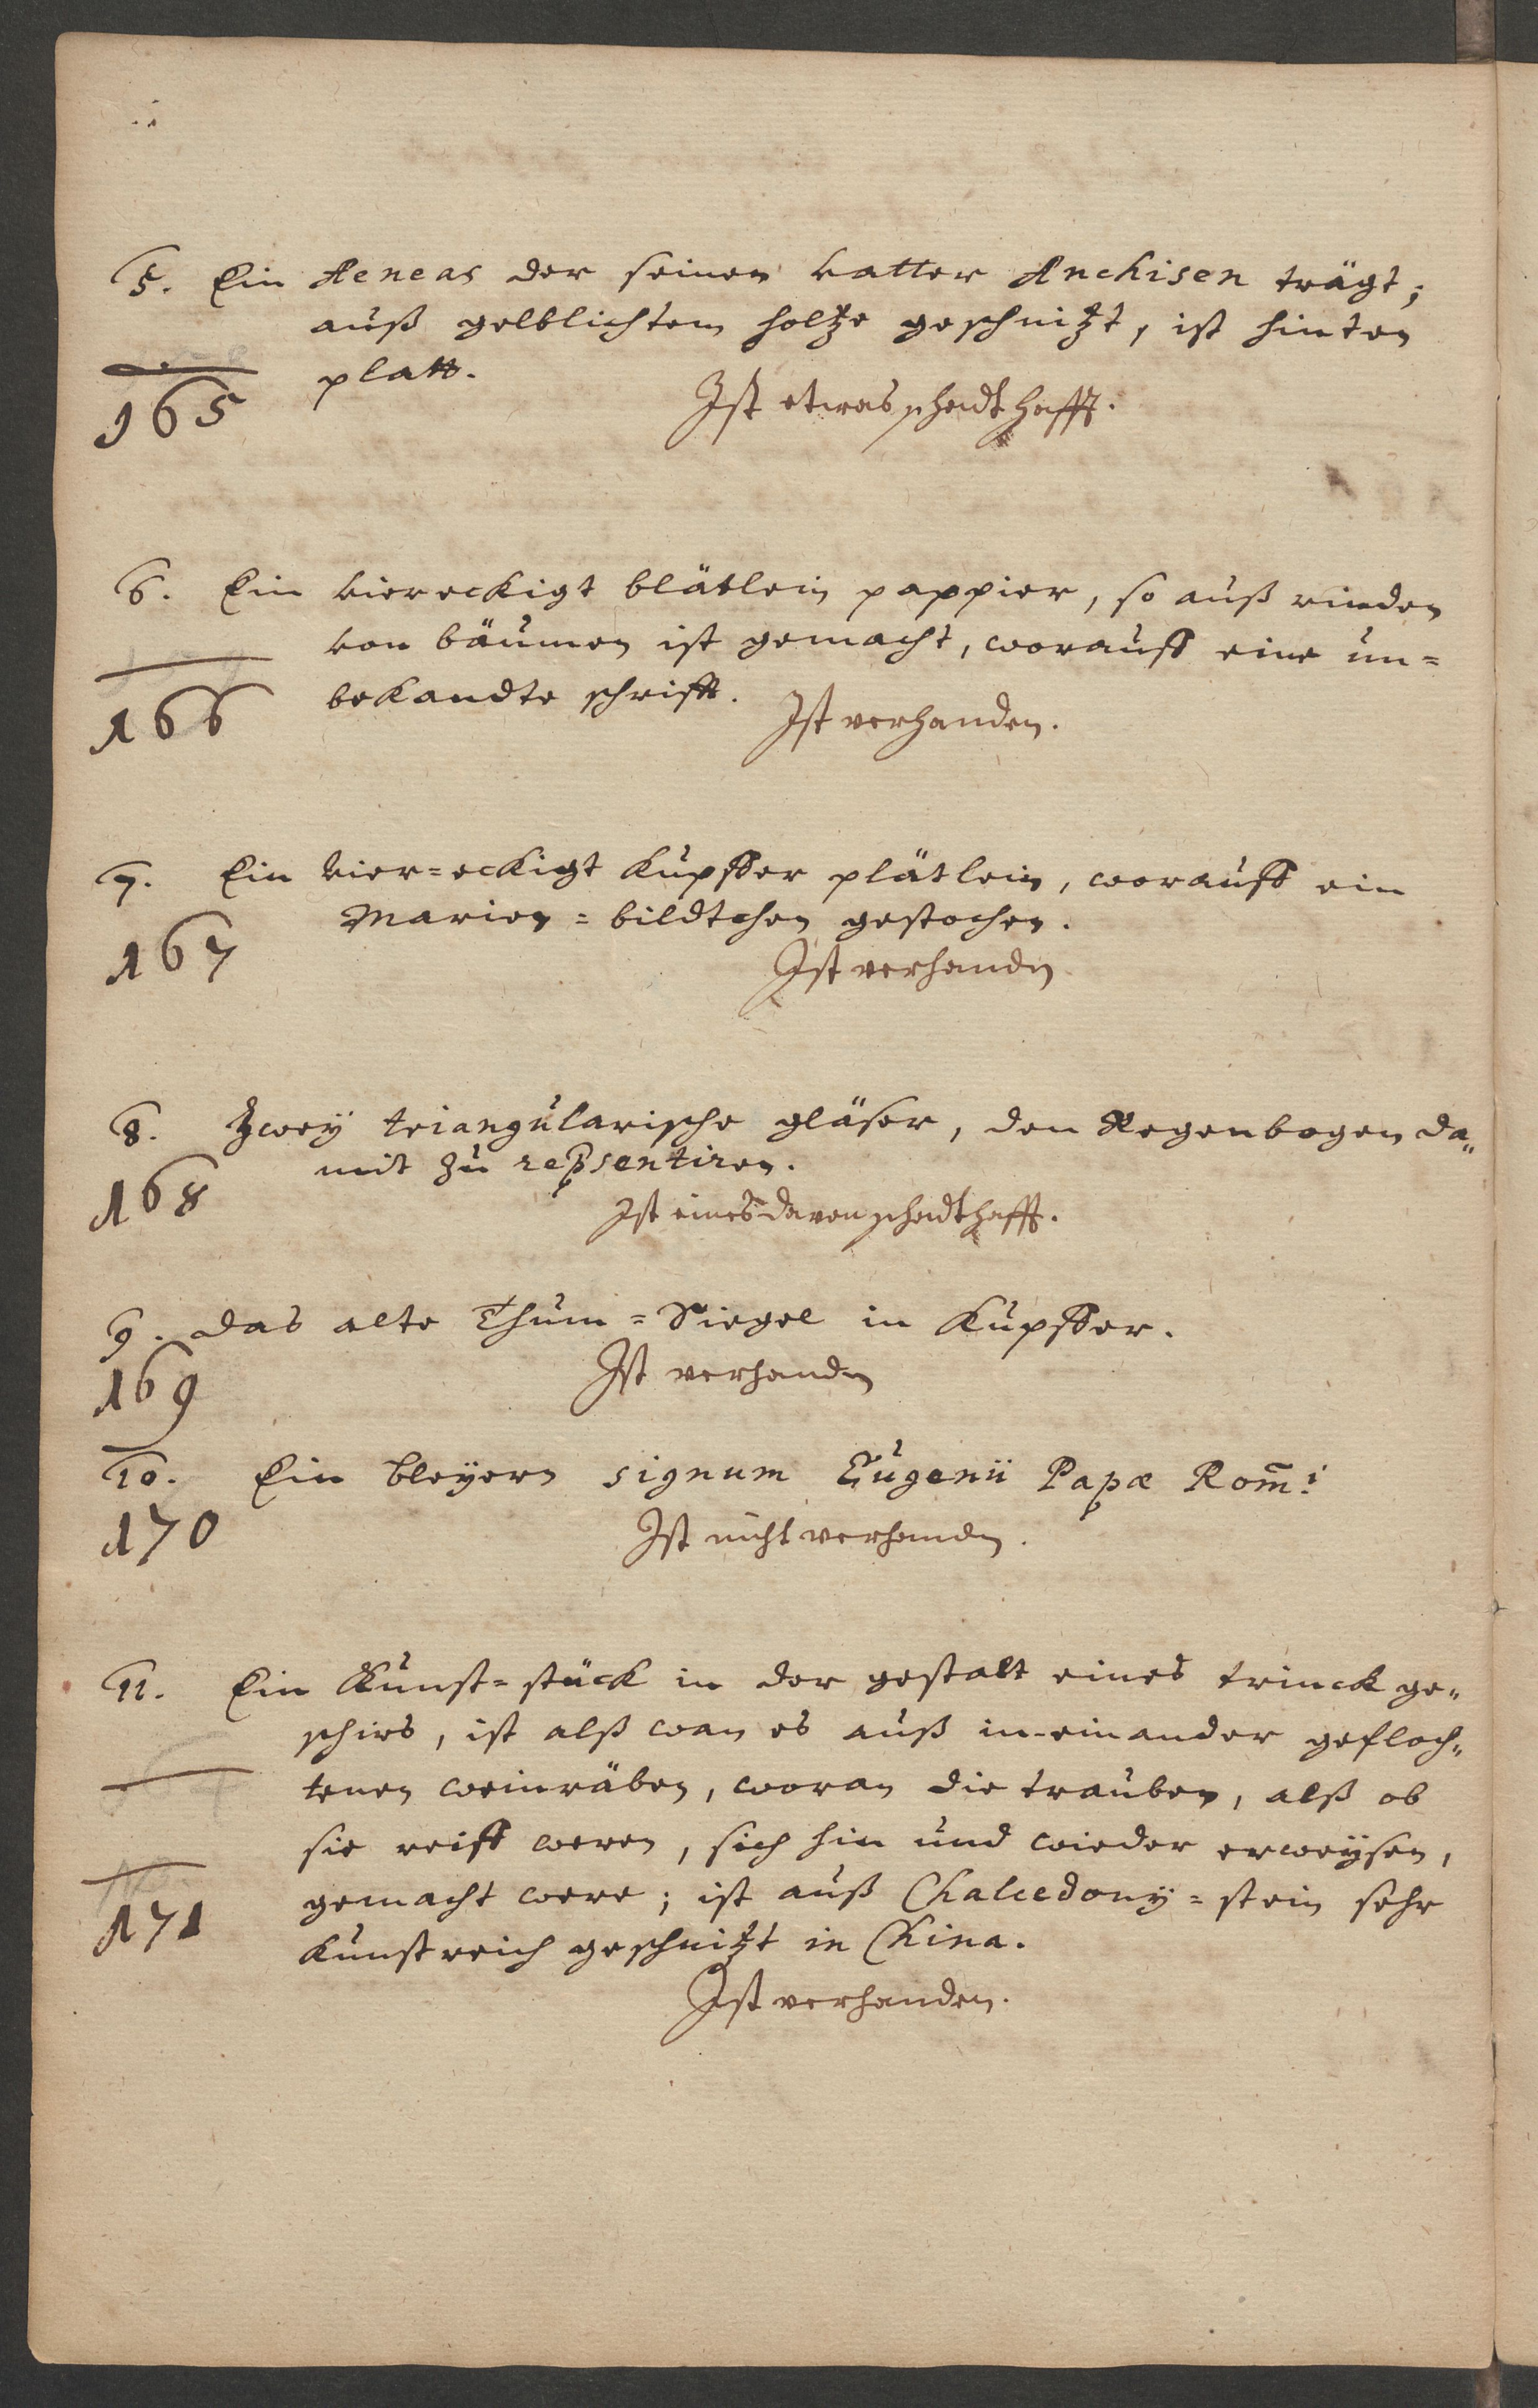 5. Ein Aeneas der seinen vatter Anchisen trägt;
auß gelblichtem holtze geschnitzt, ist hinten
platt.
Ist etwas schadthafft.
165
6. Ein viereckigt blätlein pappier, so auß rinden
von bäumen ist gemacht, worauff eine un=
bekandte schrifft.
Ist verhanden.
166
7. Ein vier=eckigt kupffer plätlein, worauff ein
Marien=bildtchen gestochen.
Ist verhanden
167
8. Zwey triangularische gläser, den Regenbogen da„
mit zu repsentiren.
Ist eines davon schadthafft.
168
9. Das alte Thum=Siegel in Kupffer.
Ist verhanden
169
10. Ein bleyern signum Eugenii Papæ Rom̄i
Ist nicht verhanden.
170
11. Ein Kunst=stück in der gestalt eines trinck ge„
schirs, ist alß wan es auß in-einander gefloch„
tenen weinräben, woran die trauben, alß ob
sie reiff weren, sich hin und wieder erweÿsen,
gemacht were; ist auß Chalcedonÿ=stein sehr
kunstreich geschnitzt in China.
Ist verhanden.
171